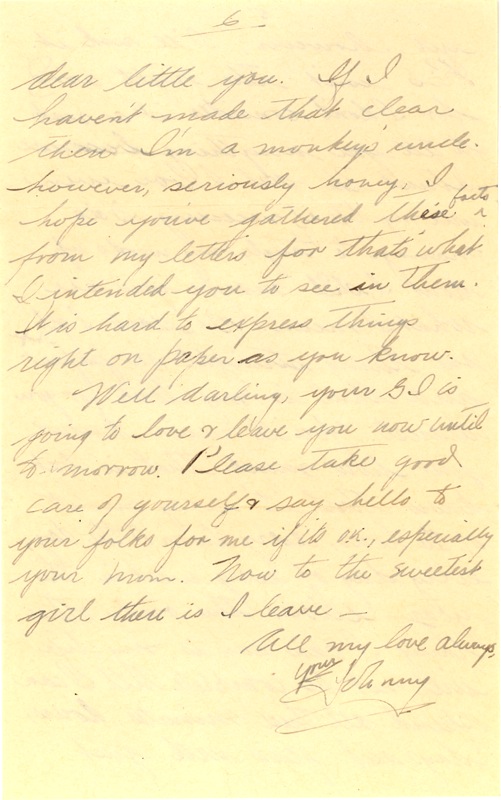 6
dear little you. If I
haven't made that clear
then I'm a monkey's uncle.
however, seriously honey, I
hope you've gathered these facts
from my letters for that's what
I intended you to see in them.
It is hard to express things
right on paper as you know.
Well darling, your GI is
going to love & leave you now until
to-morrow. Please take good
care of yourself & say hello to
your folks for me if its o.k., especially
your mom. Now to the sweetest
girl there is I leave —
All my love always,
your
Johnny